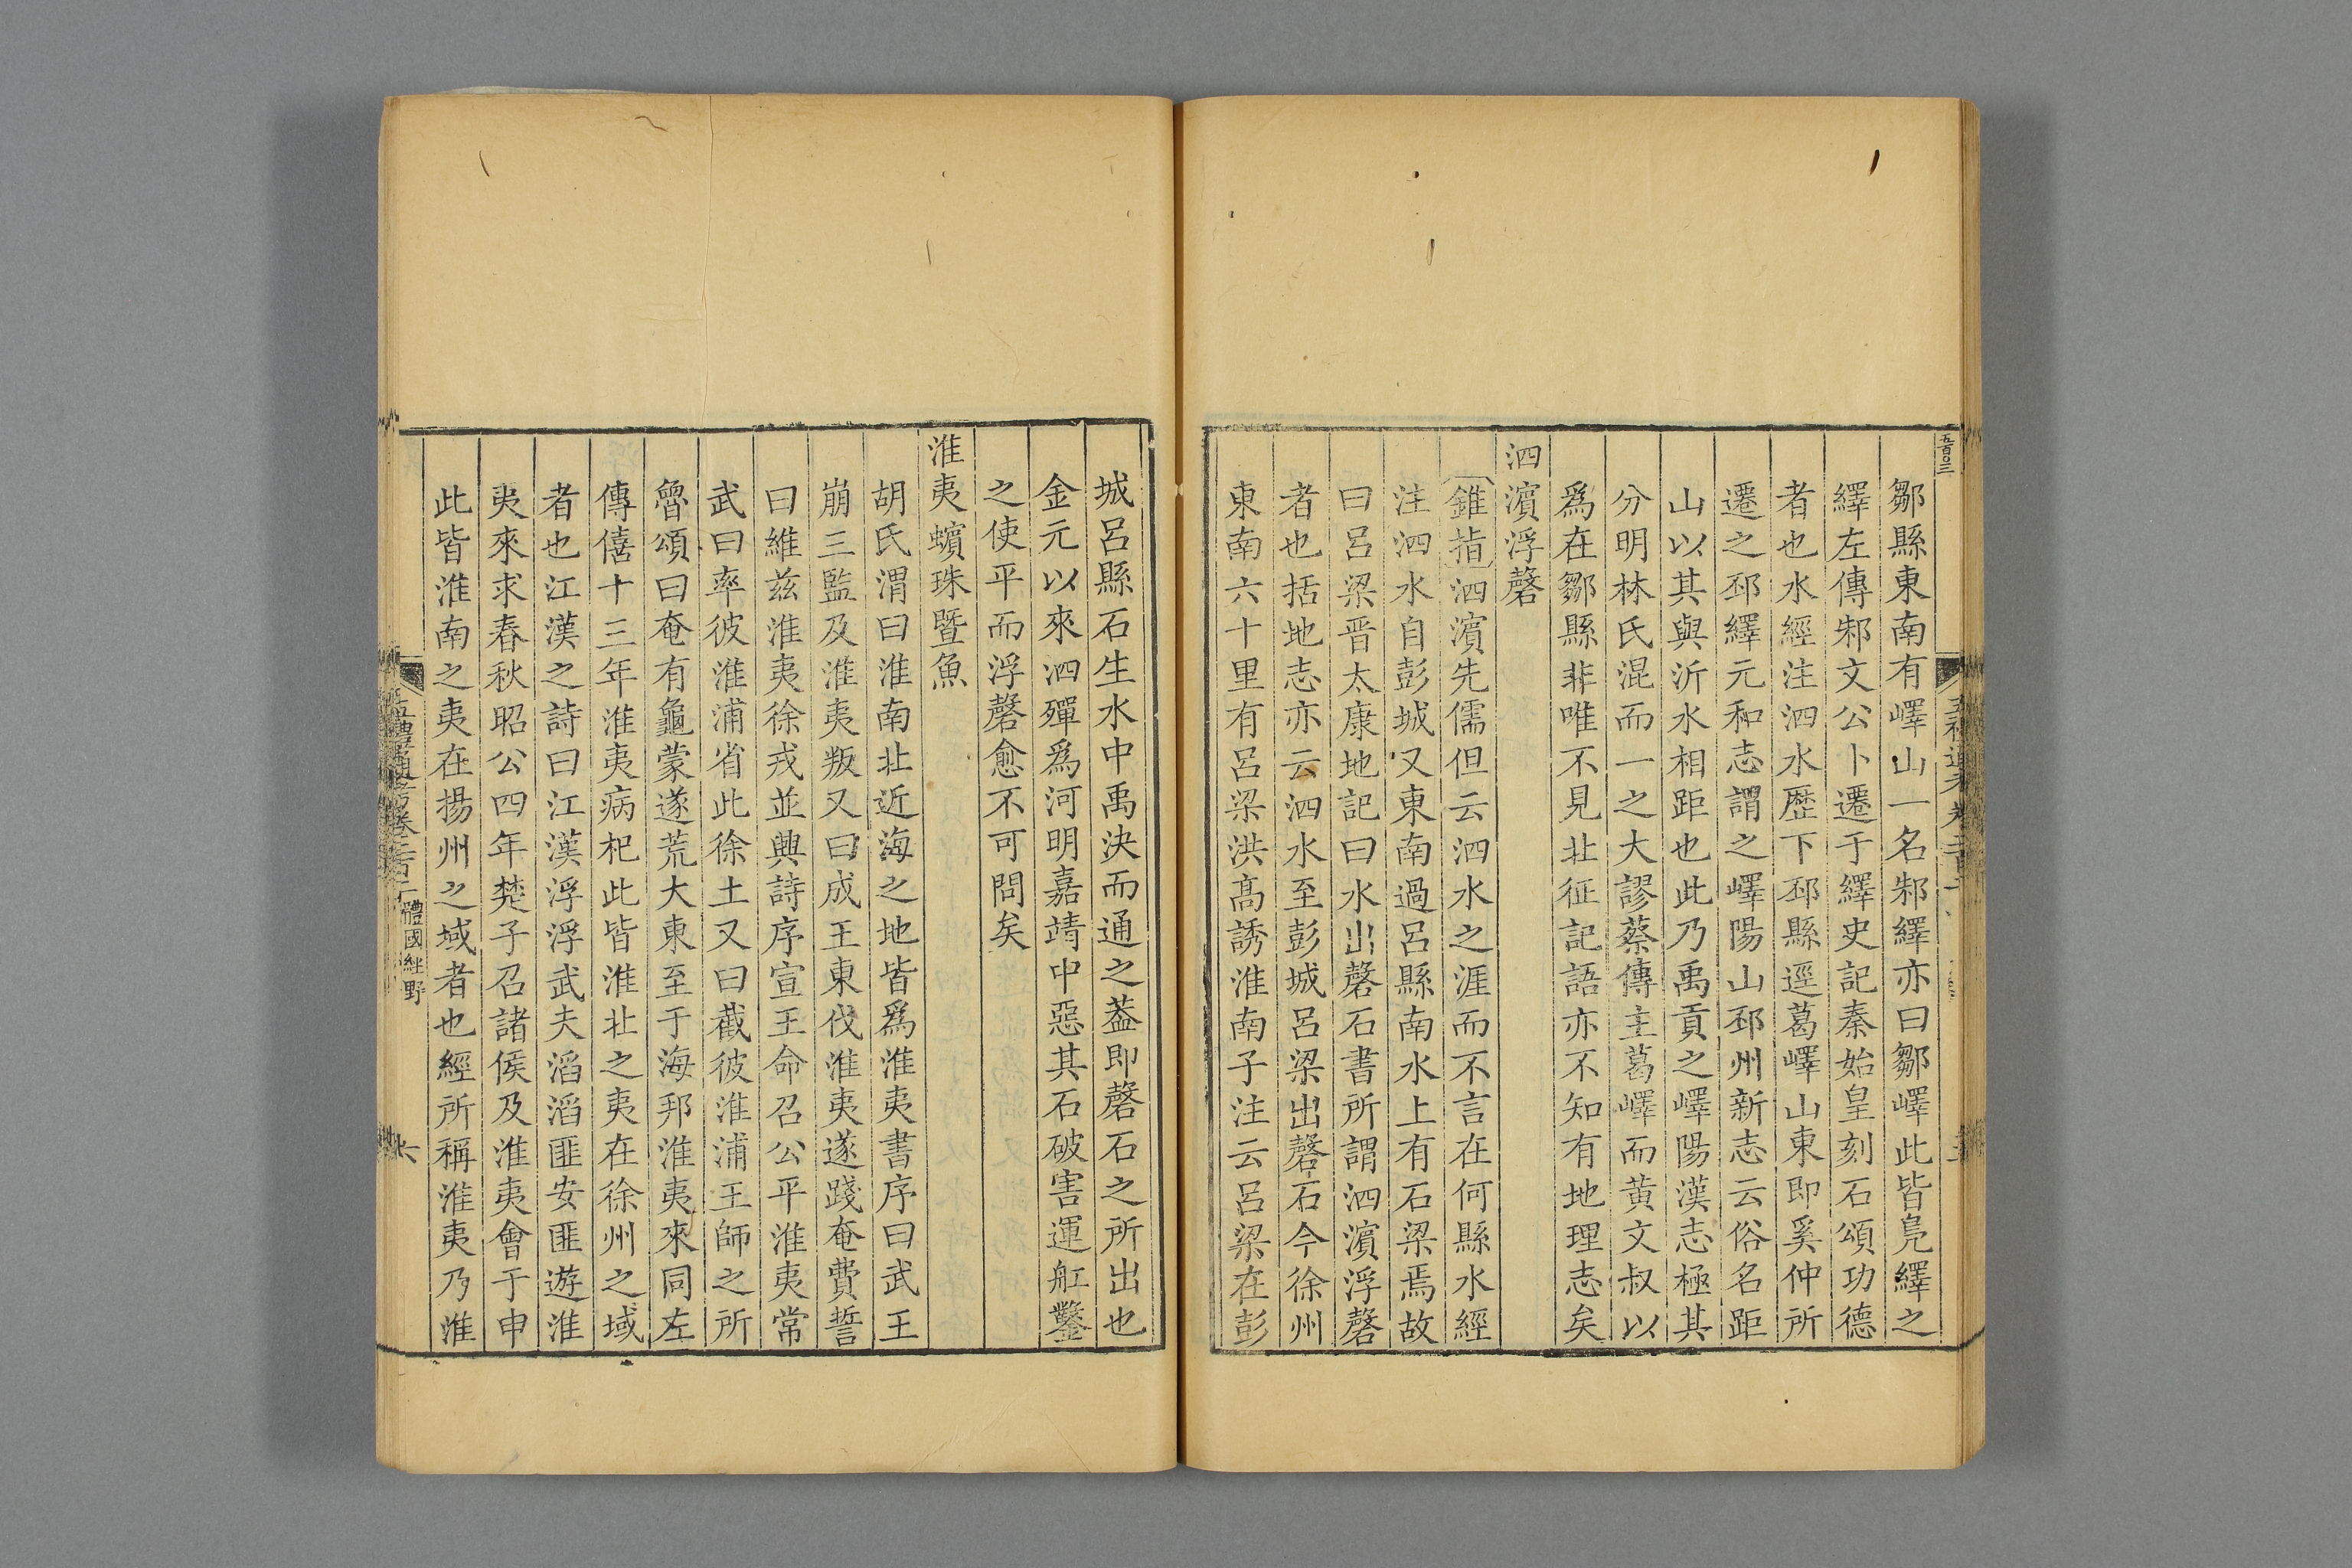 五百〇三
鄒縣東南有嶧山一名邾繹亦曰鄒嶧此皆鳧繹之
繹左傳邾文公卜遷于繹史記秦始皇刻石頌功德
者也水經注泗水歷下邳縣逕葛嶧山東即奚仲所
遷之邳繹元和志謂之嶧陽山邳州新志云俗名距
山以其與沂水相距也此乃禹貢之嶧陽漢志極其
分明林氏混而一之大謬蔡傳主葛嶧而黄文叔以
爲在鄒縣非唯不見北征記語亦不知有地理志矣
泗濵浮磬
錐指泗濵先儒但云泗水之涯而不言在何縣水經
注泗水自彭城又東南過呂縣南水上有石梁焉故
曰呂梁晋太康地記曰水出磬石書所謂泗濵浮磬
者也括地志亦云泗水至彭城呂梁出磬石今徐州
東南六十里有呂梁洪髙誘淮南子注云呂梁在彭
城呂縣石生水中禹決而通之葢即磬石之所出也
金元以來泗殫爲河明嘉靖中惡其石破害運舡鑿
之使平而浮磬愈不可問矣
淮夷蠙珠暨魚
胡氏渭曰淮南北近海之地皆爲淮夷書序曰武王
崩三監及淮夷叛又曰成王東伐淮夷遂踐奄費誓
曰維兹淮夷徐戎並興詩序宣王命召公平淮夷常
武曰率彼淮浦省此徐土又曰截彼淮浦王師之所
魯頌曰奄有龜蒙遂荒大東至于海邦淮夷來同左
傳僖十三年淮夷病杞此皆淮北之夷在徐州之域
者也江漢之詩曰江漢浮浮武夫滔滔匪安匪遊淮
夷來求春秋昭公四年楚子召諸侯及淮夷會于申
此皆淮南之夷在揚州之域者也經所稱淮夷乃淮
五禮通考卷二百二 體國經野 六